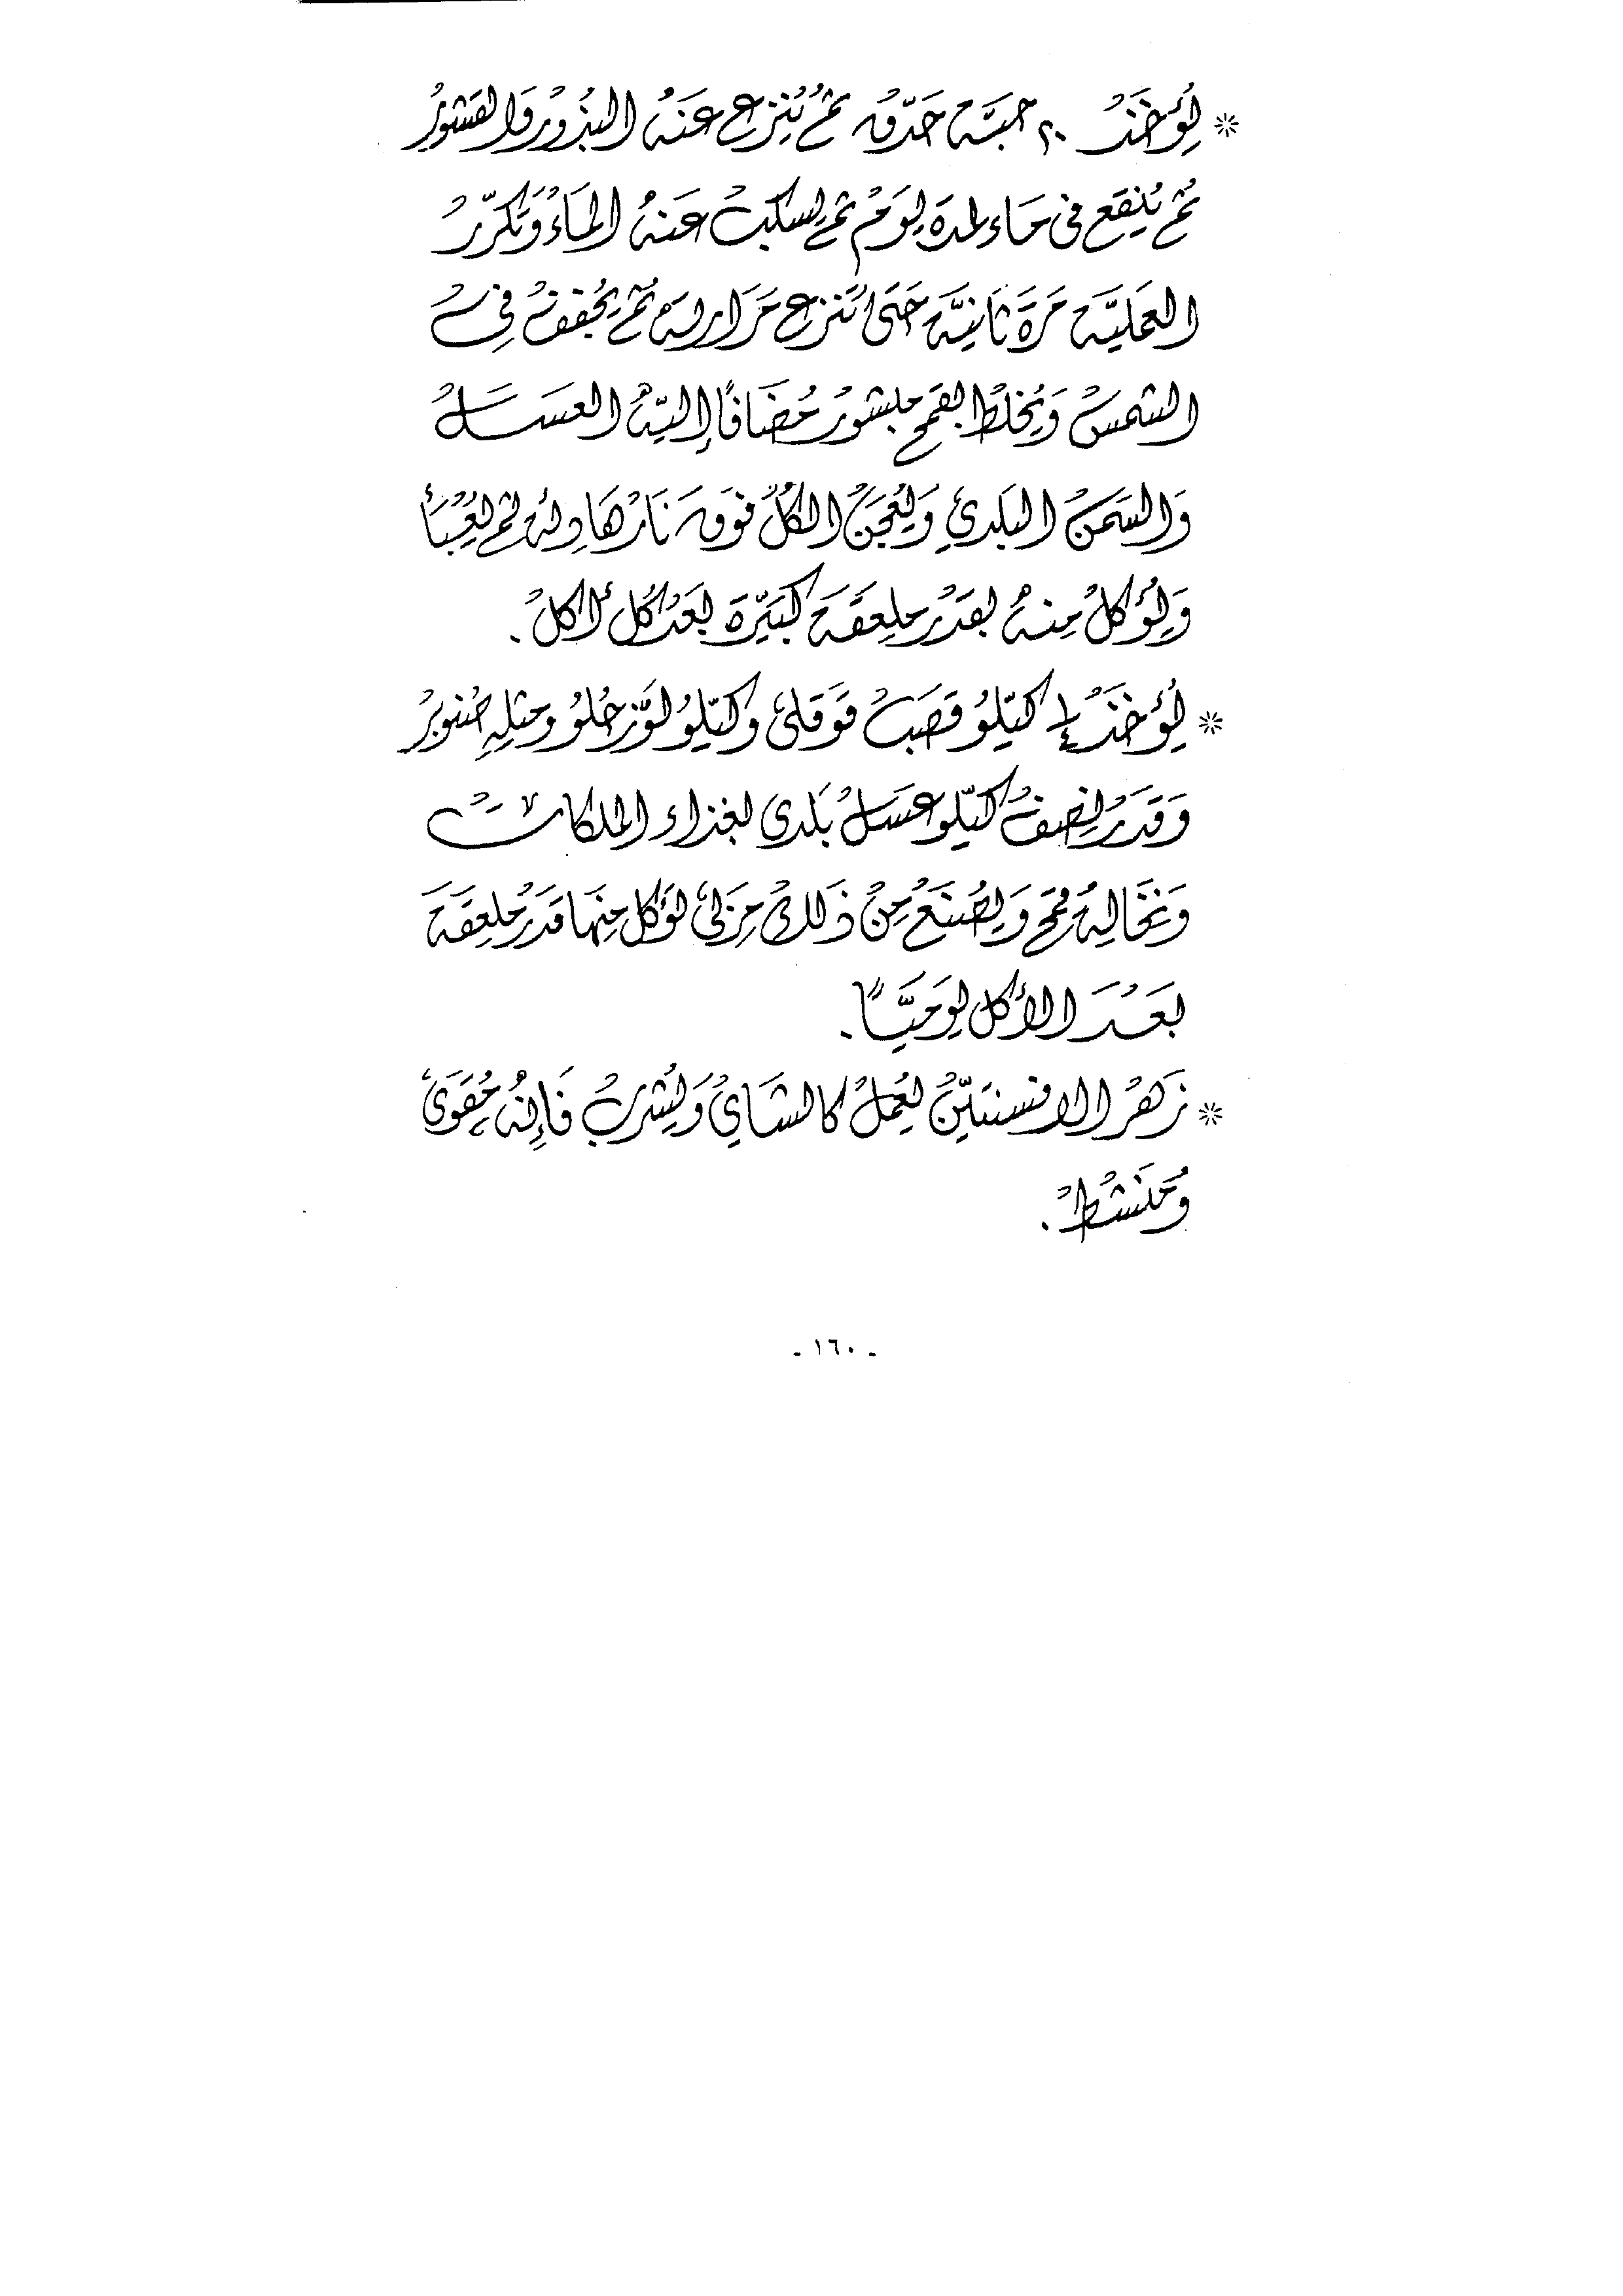 * يُؤخَذُ ٢٠ حبَّة حَدَق ثمُ تُنِزع عنَهُ البُذوُر وَالقشورُ
ثُم يُنقَع فى مَاء لمدة يوَمُ ثم يسكبُ عَنهُ الماَءُ وَتكرّرُ
العمَليَّة مَرةَ ثَانيَّة حَتى تَنزع مَرَارته ثُم يُجففُ فىِ
الشمسُ وَيُخلطُ بقمح مبشورُ مُضَافاً إليّهُ العسَلُ
وَالسَمنُ البَلدىِ وَيُعجَنُ الكُلُ فوَق نَارُ هَادِئه ثم يُعَبُأ
وَيؤُكلُ مِنهُ بقدَرُ ملِعقَة كبَيّرة بعَدُ كُل أكلُ .
* يُؤخَذُ ¼ كيّلوُ قصَبُ قوَقلىُ وكيّلوُ لوَّز حُلوُ ومثلِهِ صُنوبرُ
وَقدَرُ نِصفُ كيّلو عسَلُ بَلدى بغذاء الملكاتُ
وَنخَالِةُ قمح وَيصُنعَُ مِنُ ذَلكُ مِربىُ يؤَكل مِنهَا قدَرُ مُلعِقةَ
بعَدُ الأكل يومَيَّاً .
* زَهَرُ الافسنتيّنُ يُعَملُ كالشَاىُ وَيُشربُ فَإِنهُ مُقوَىُ
وُمنَشُطُ .
- ١٦٠ -